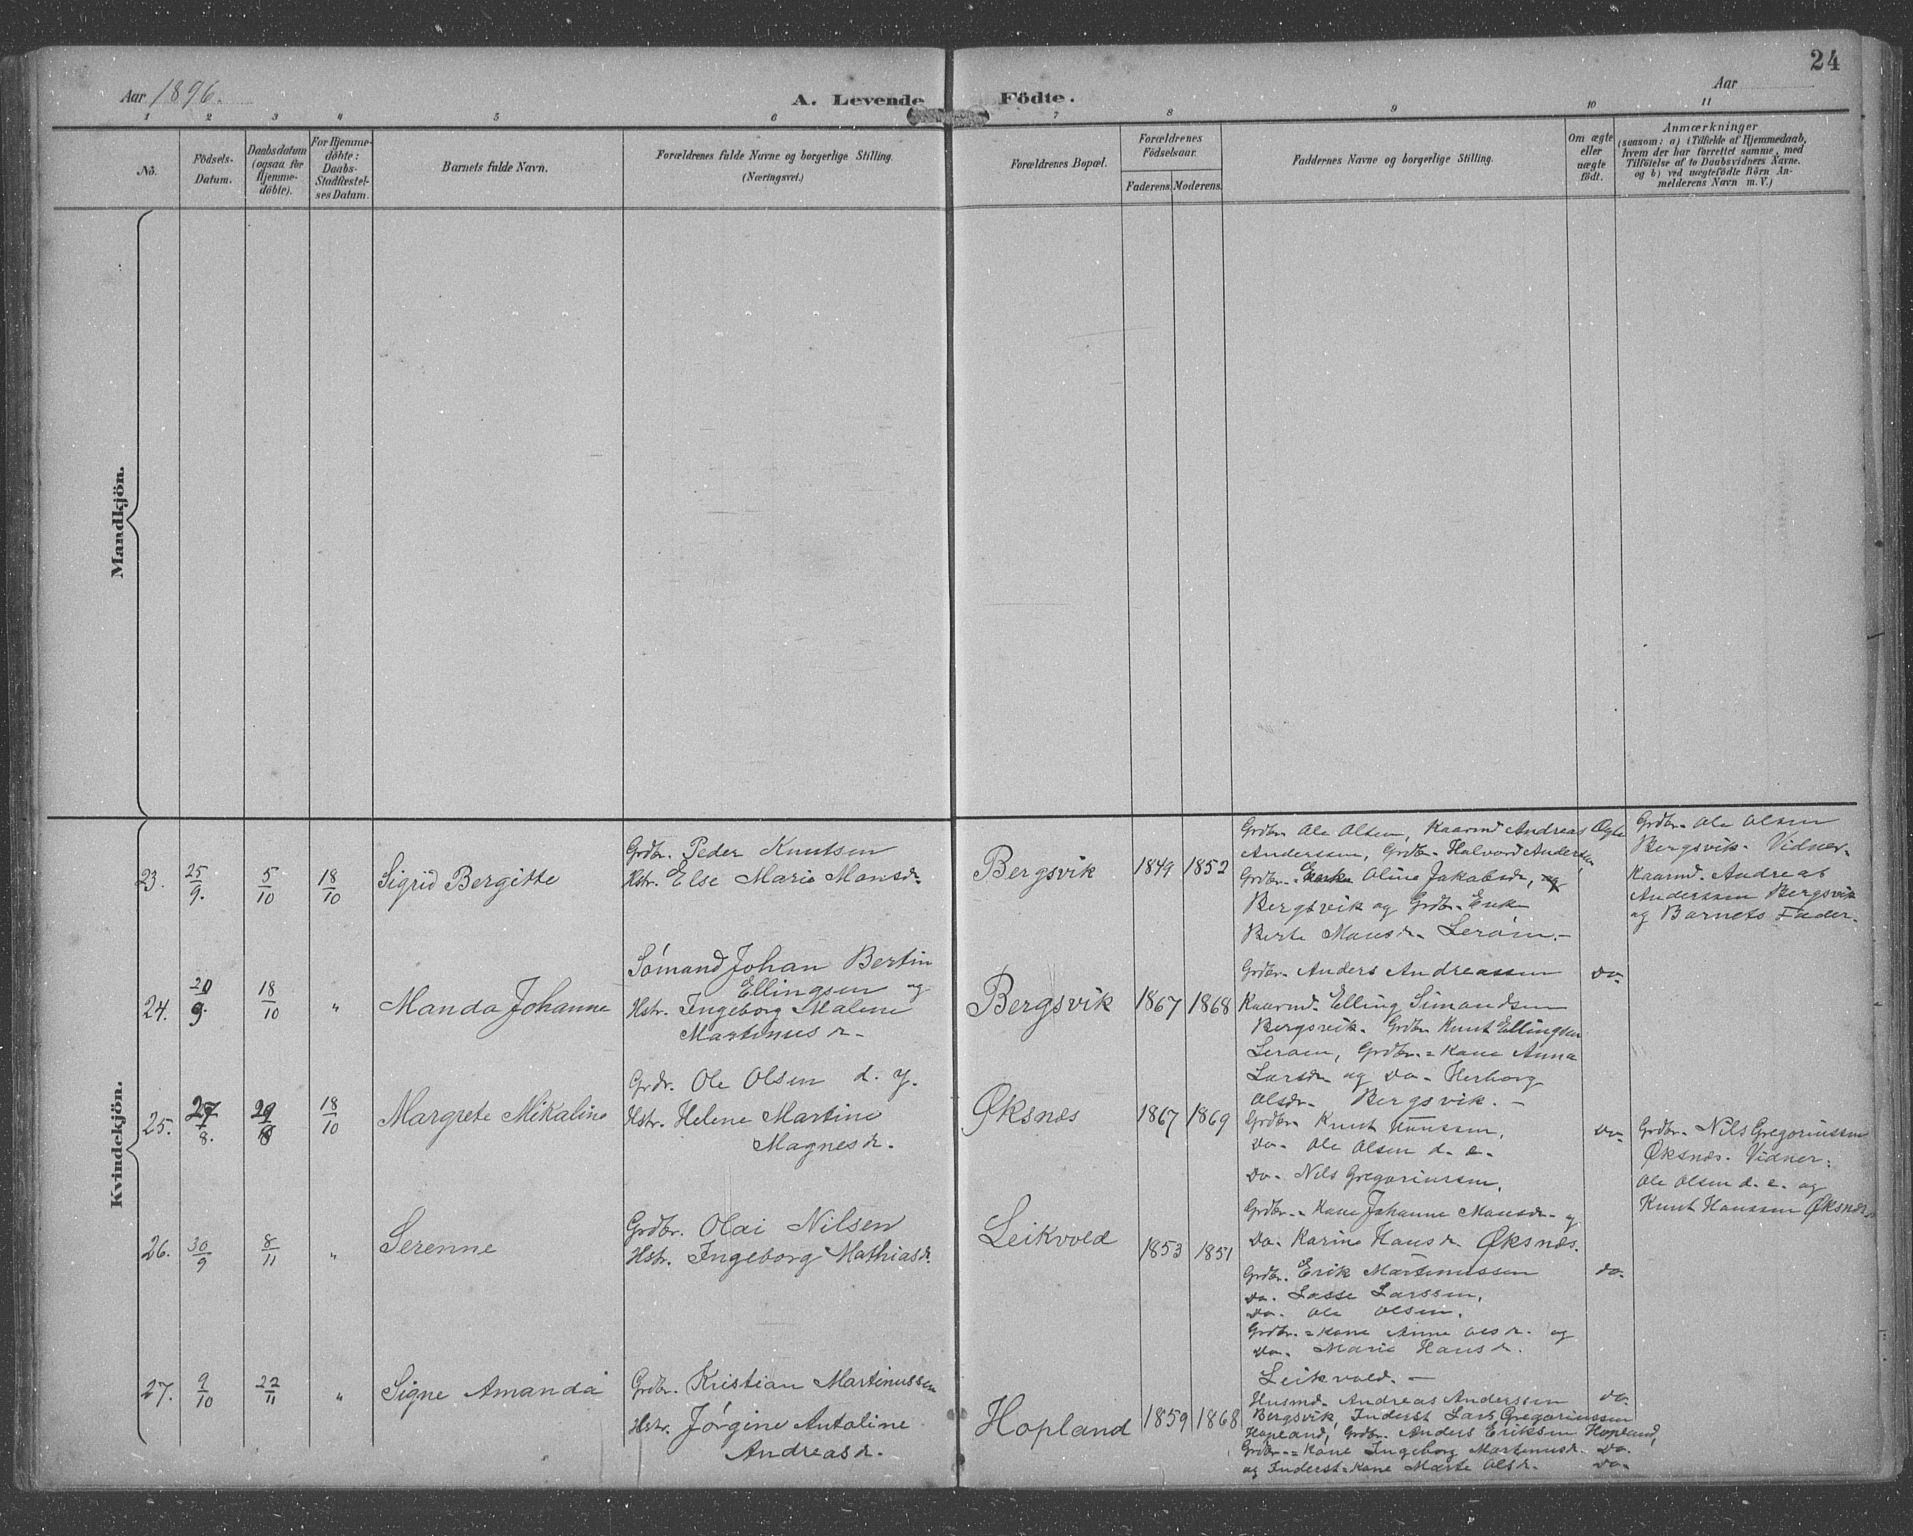 24
Aar 1896.
A. Levende Födte.
Aar
1 2 3 4 5 6 7 8 9 10 11
No.
Födsels-
Datum.
Daabsdatum
(ogsaa for
Hjemme-
döbte).
For Hjemme-
döbte:
Daabs-
Stadfæstel-
ses Datum.
Barnets fulde Navn.
Forældrenes fulde Navne og borgerlige Stilling.
(Næringsvei.)
Forældrenes Bopæl.
Forældrenes
Födselsaar.
Faderens. Moderens.
Faddernes Navne og borgerlige Stilling.
Om ægte
eller
uægte
födt.
Anmærkninger
(saasom: a) i Tilfælde af Hjemmedaab,
hvem der har forrettet samme, med
Tilföielse af to Daabsvidners Navne.
og b) ved uægtefödte Börn An-
melderens Navn m. V.)
Mandkjön.
Kvindekjön.
23.
25/9.
5/10
18/10
Sigrid Bergitte
Grdbr. Peder Knutsen
Hstr. Else Marie Monsdr.
Bergsvik
1849 1852
Grdbr. Ole Olsen, Kaarmd Andreas
Anderssen, Grdbr. Halvord Anderssen,
Grdbr. Oline Jakobsdr, og
Bergsvik og Grdbr. Enke
Berte Monsdr. Lerøim.-
Ægte
Grdbr. Ole Olsen
Bergsvik. Vidner-
Kaarmd. Andreas
Anderssen Bergsvik
og Barnets Fader.
24.
20/9
18/10
"
Manda Johanne
Sømand Johan Bertin
Ellingsen og
Hstr. Ingeborg Malene
Martinusdr.
Bergsvik
1867 1868
Grdbr. Anders Andreassen
Kaarmd. Elling Simondsen
Bergsvik. Grdbr. Knut Ellingsen
Lerøim, Grdbr.=Kone Anna
Larsdr og Do. Herborg
Olsdr. Bergsvik.-
Do.
25.
27/8.
29/8
18/10
Margrete Mikaline
Grdr. Ole Olsen d. y.
Hstr. Helene Martine
Magnesdr.
Øksnæs
1867 1869
Grdbr. Knut Hanssen,
Do. Ole Olsen d. e.
Do. Nils Gregoriussen,
Grdbr.=Kone Johanne Monsdr. og
Do. Karine Hansdr. Øksnæs.
Do.
Grdbr. Nils Gregoriussen
Øksnæs. Vidner:
Ole Olsen d. e. og
Knut Hanssen Øksnæs
26.
30/9
8/11
"
Serenne
Grdbr. Olai Nilsen
Hstr. Ingeborg Mathiasdr.
Leikvold
1853 1851
Grdbr. Erik Martinussen
Do. Lasse Larssen,
Do. Ole Olsen,
Grdbr.=Kone Anne Olsdr. og
Do. Marie Hansdr.
Leikvold.-
Do.
27.
9/10
22/11
"
Signe Amanda
Grdbr. Kristian Martinussen
Hstr. Jørgine Antoline
Andreasdr.
Hopland
1859 1868
Husmd. Andreas Anderssen
Bergsvik, Inderst Lars Gregoriussen
Hopland, Grdbr. Anders Eriksen Hopland,
Grdbr.=Kone Ingeborg Martinusdr. Do.
og Inderst=Kone Marte Olsdr. Do.
Do.